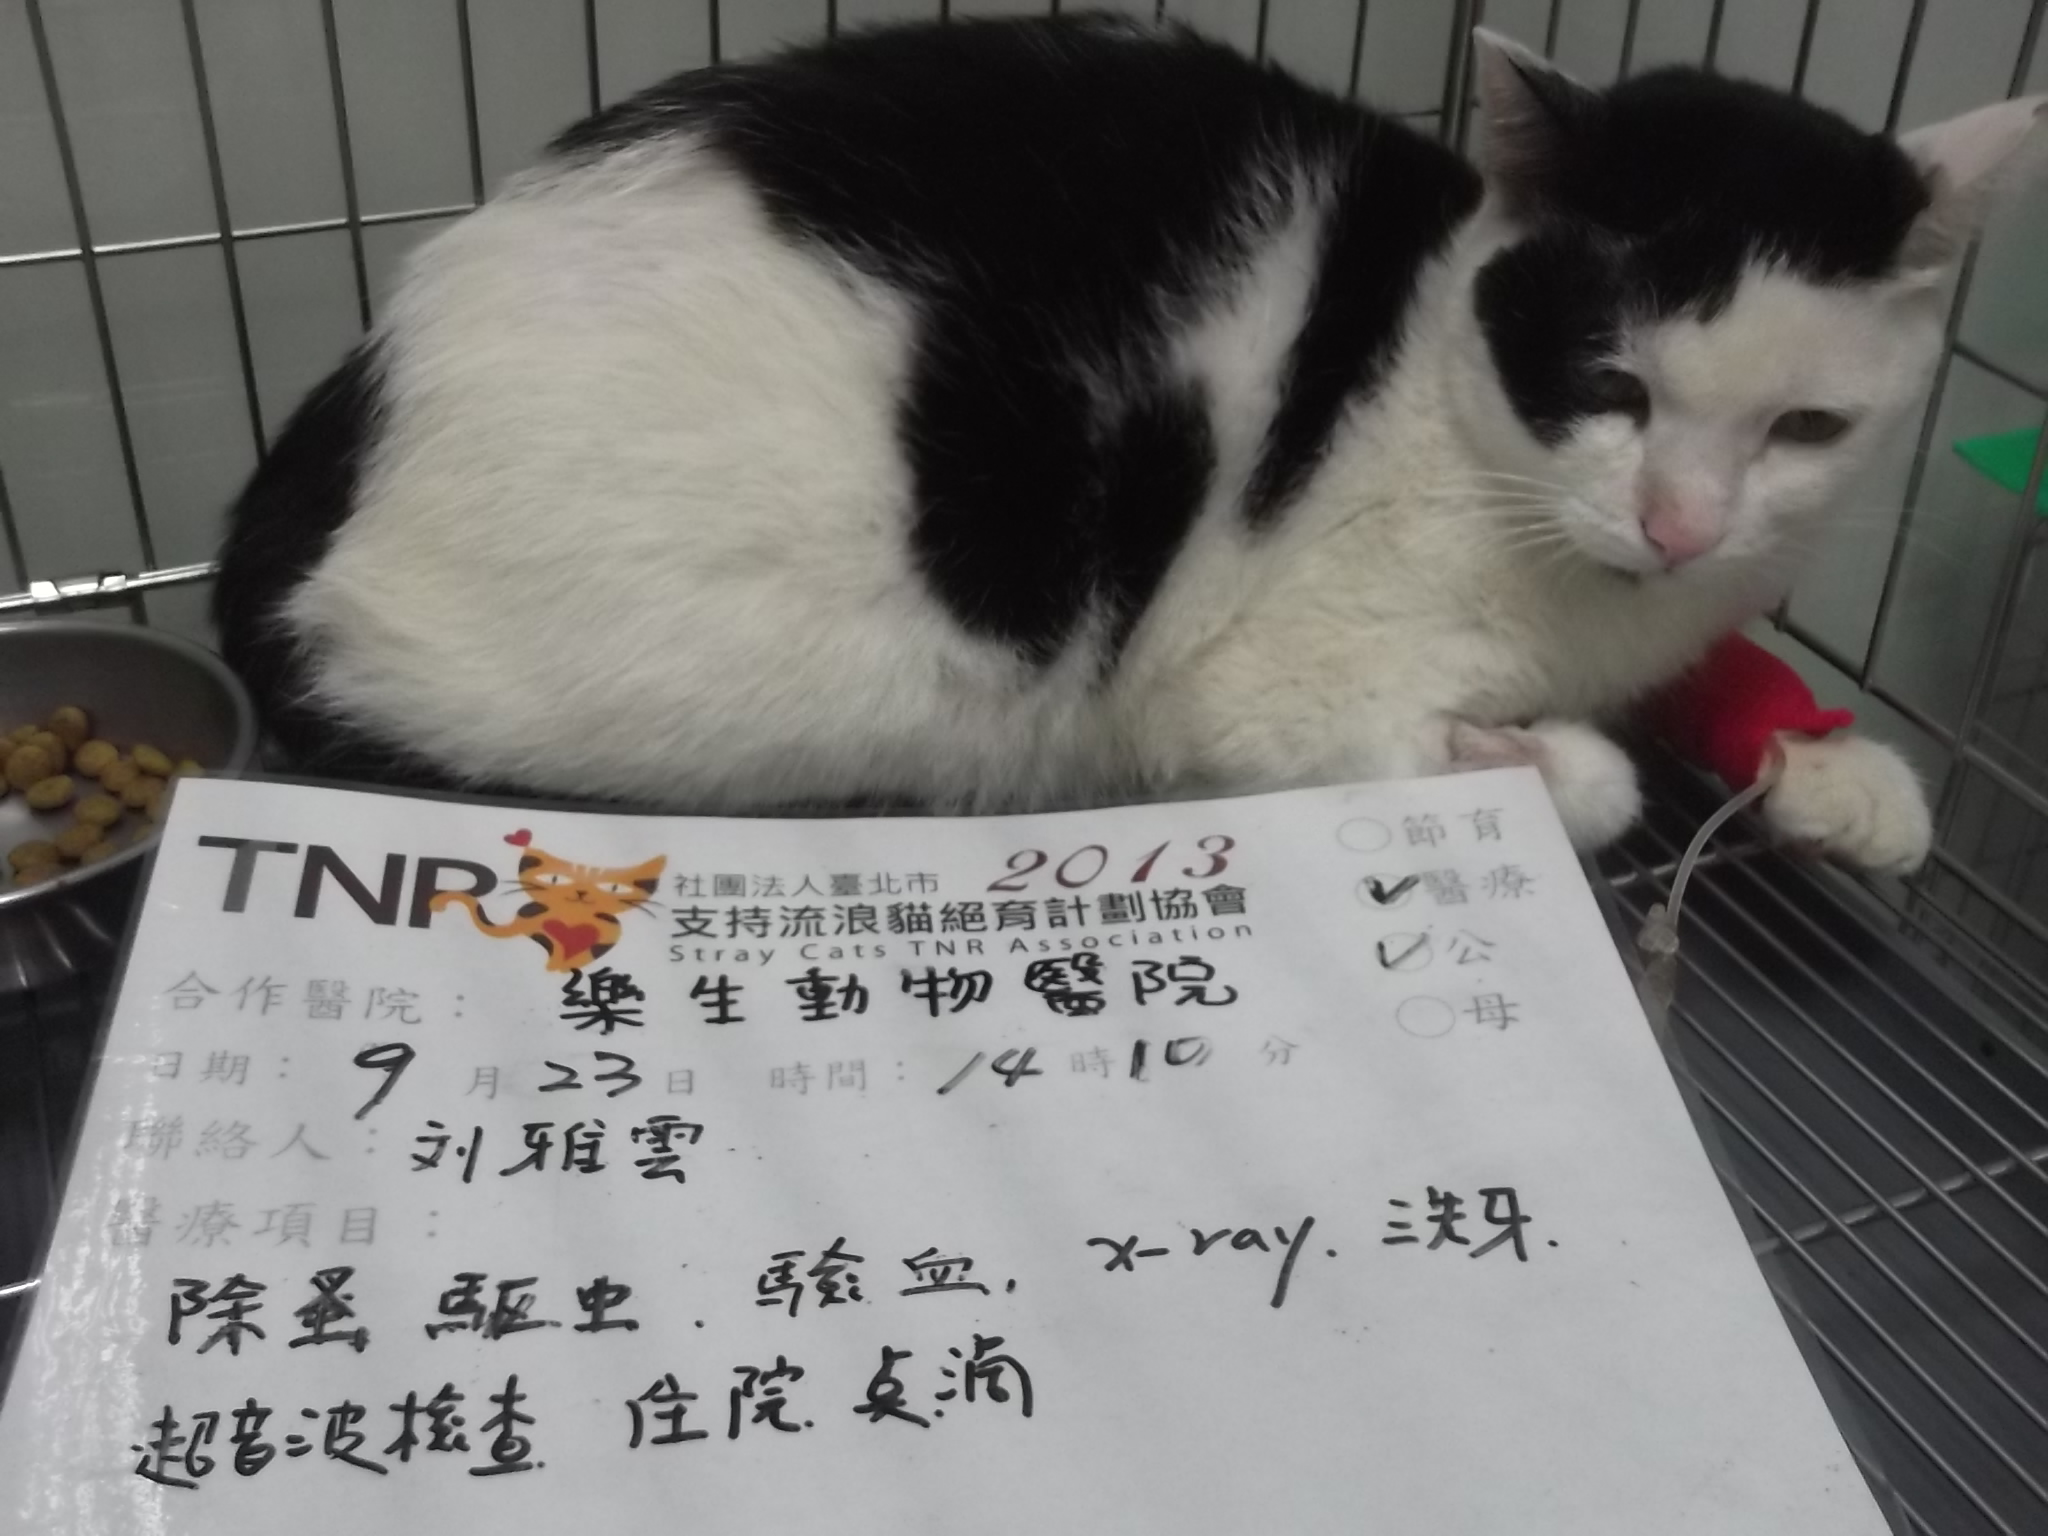 TNR 社團法人臺北市 2013
支持流浪貓絕育計劃協會
Stray Cats TNR Association
節育
醫療
公
母
合作醫院：樂生動物醫院
日期：9月23日 時間：14時10分
聯絡人：刘雅雲
醫療項目：
除蚤 驅虫．驗血．x-ray．洗牙．
超音波檢查 住院 点滴